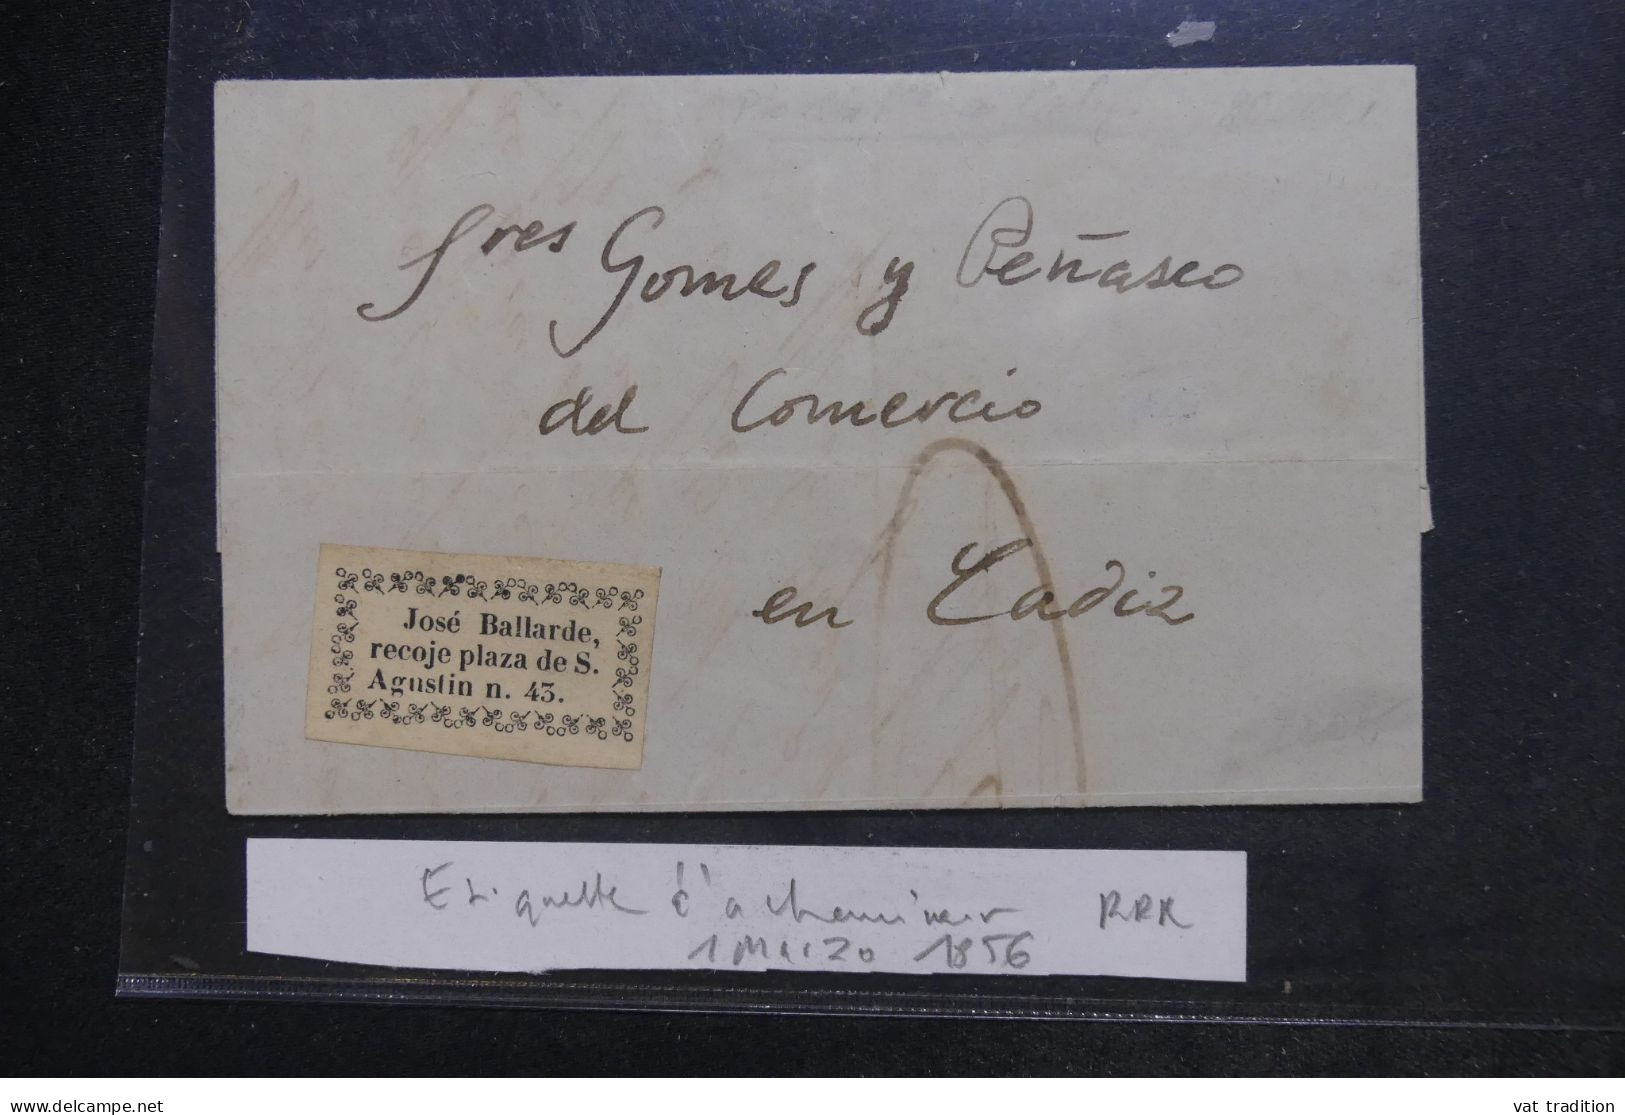 Sres Gomes y Peñasco
del Comercio
en Cadiz
José Ballarde,
recoje plaza de S.
Agustin n. 43.
Etiquette d'achemineur RRR
1 Marzo 1856
www.delcampe.net
vat tradition